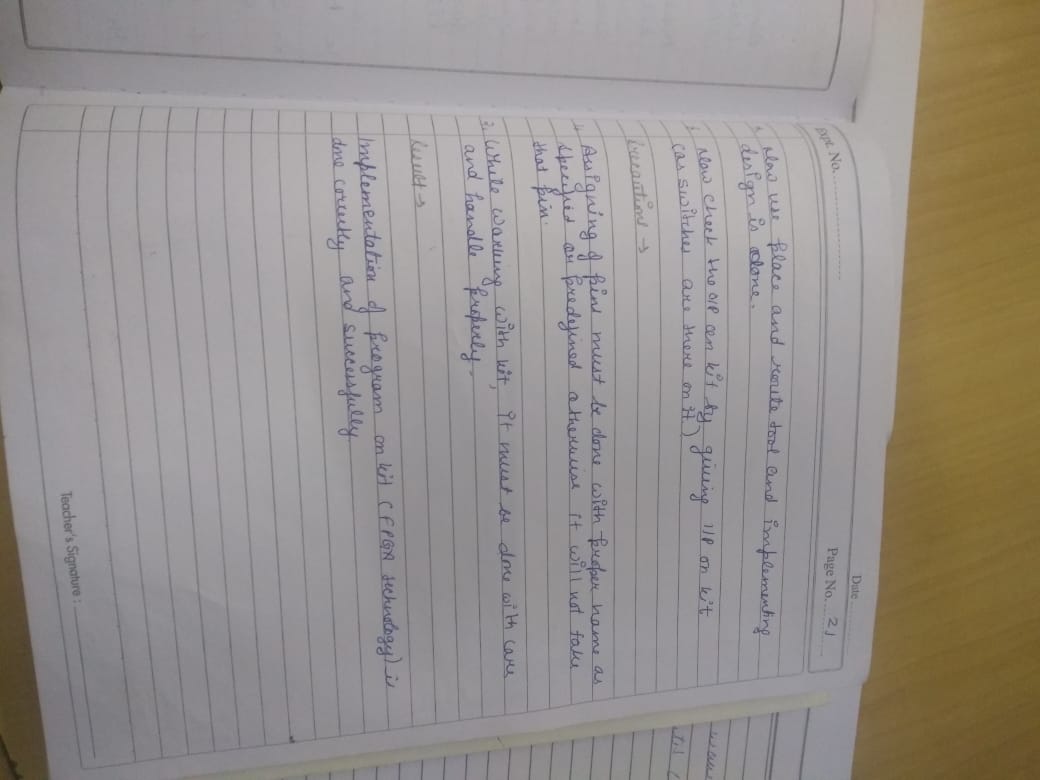 Expt. No.
Date
Page No. 21
Now use place and route tool and implementing
design is done.
Now check the O/P on kit by giving I/P on kit
(as switches are there on it.)
Precautions →
1. Assigning of pins must be done with proper name as
specified or predefined otherwise it will not take
that pin.
2. While working with kit, it must be done with care
and handle properly.
Result →
Implementation of program on kit (FPGA technology) is
done correctly and successfully.
Teacher's Signature :